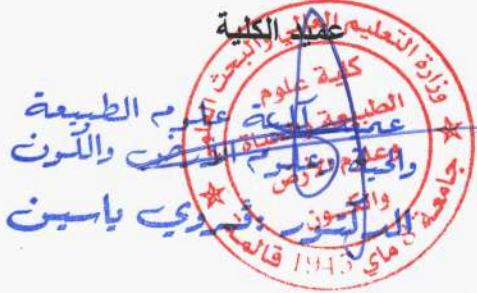 عميد الكلية
وزارة التعليم العالي والبحث العلمي
جامعة 8 ماي 1945 قالمة
كلية علوم
الطبيعة والحياة
وعلوم الأرض
والكون
عميد كلية علوم الطبيعة
والحياة وعلوم الأرض والكون
الدكتور ياسين